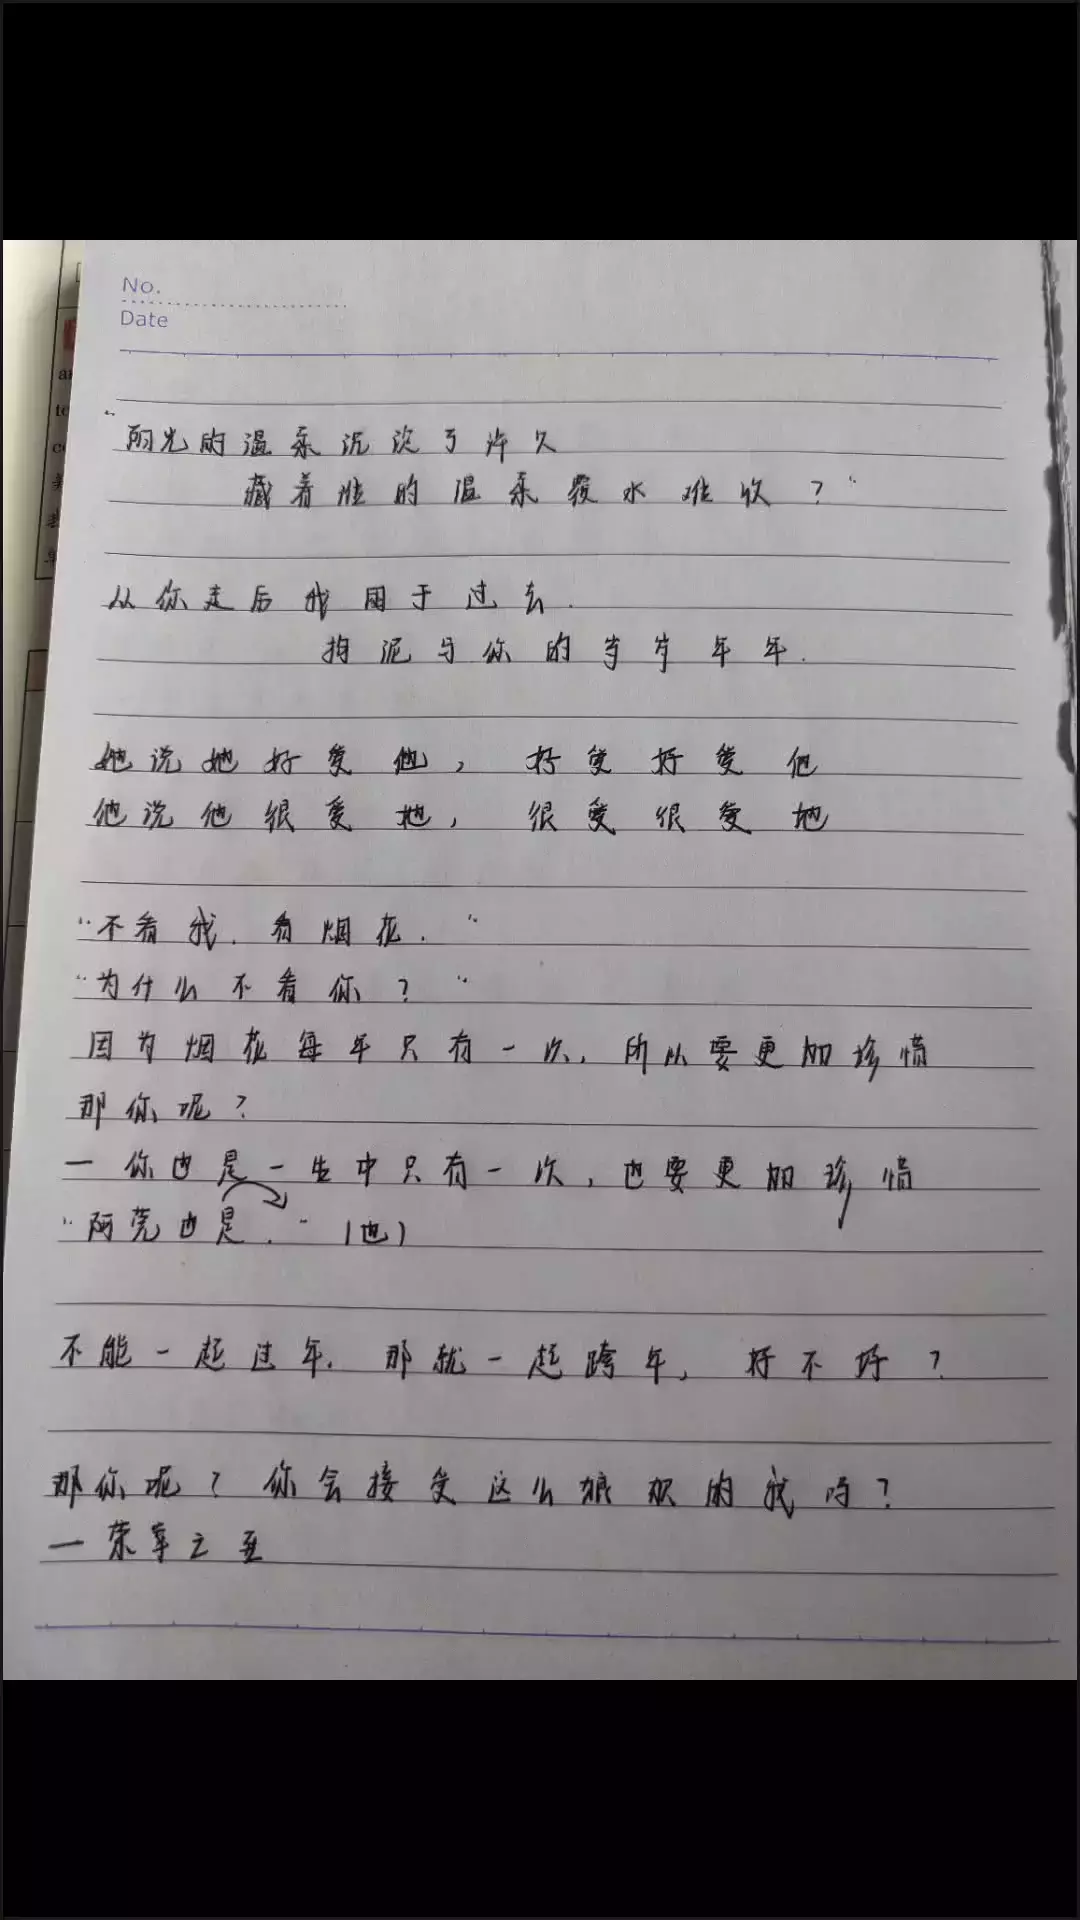 No.
Date
“阳光的温柔沉淀了许久
藏着谁的温柔覆水难收？”
从你走后我困于过去.
拘泥与你的岁岁年年.
她说她好爱他，好爱好爱他
他说他很爱她，很爱很爱她
“不看我.看烟花.”
“为什么不看你？”
因为烟花每年只有一次，所以要更加珍惜
那你呢？
一你也是一生中只有一次，也要更加珍惜
“阿莞也是.”(也)
不能一起过年.那就一起跨年，好不好？
那你呢？你会接受这么狼狈的我吗？
一荣幸之至